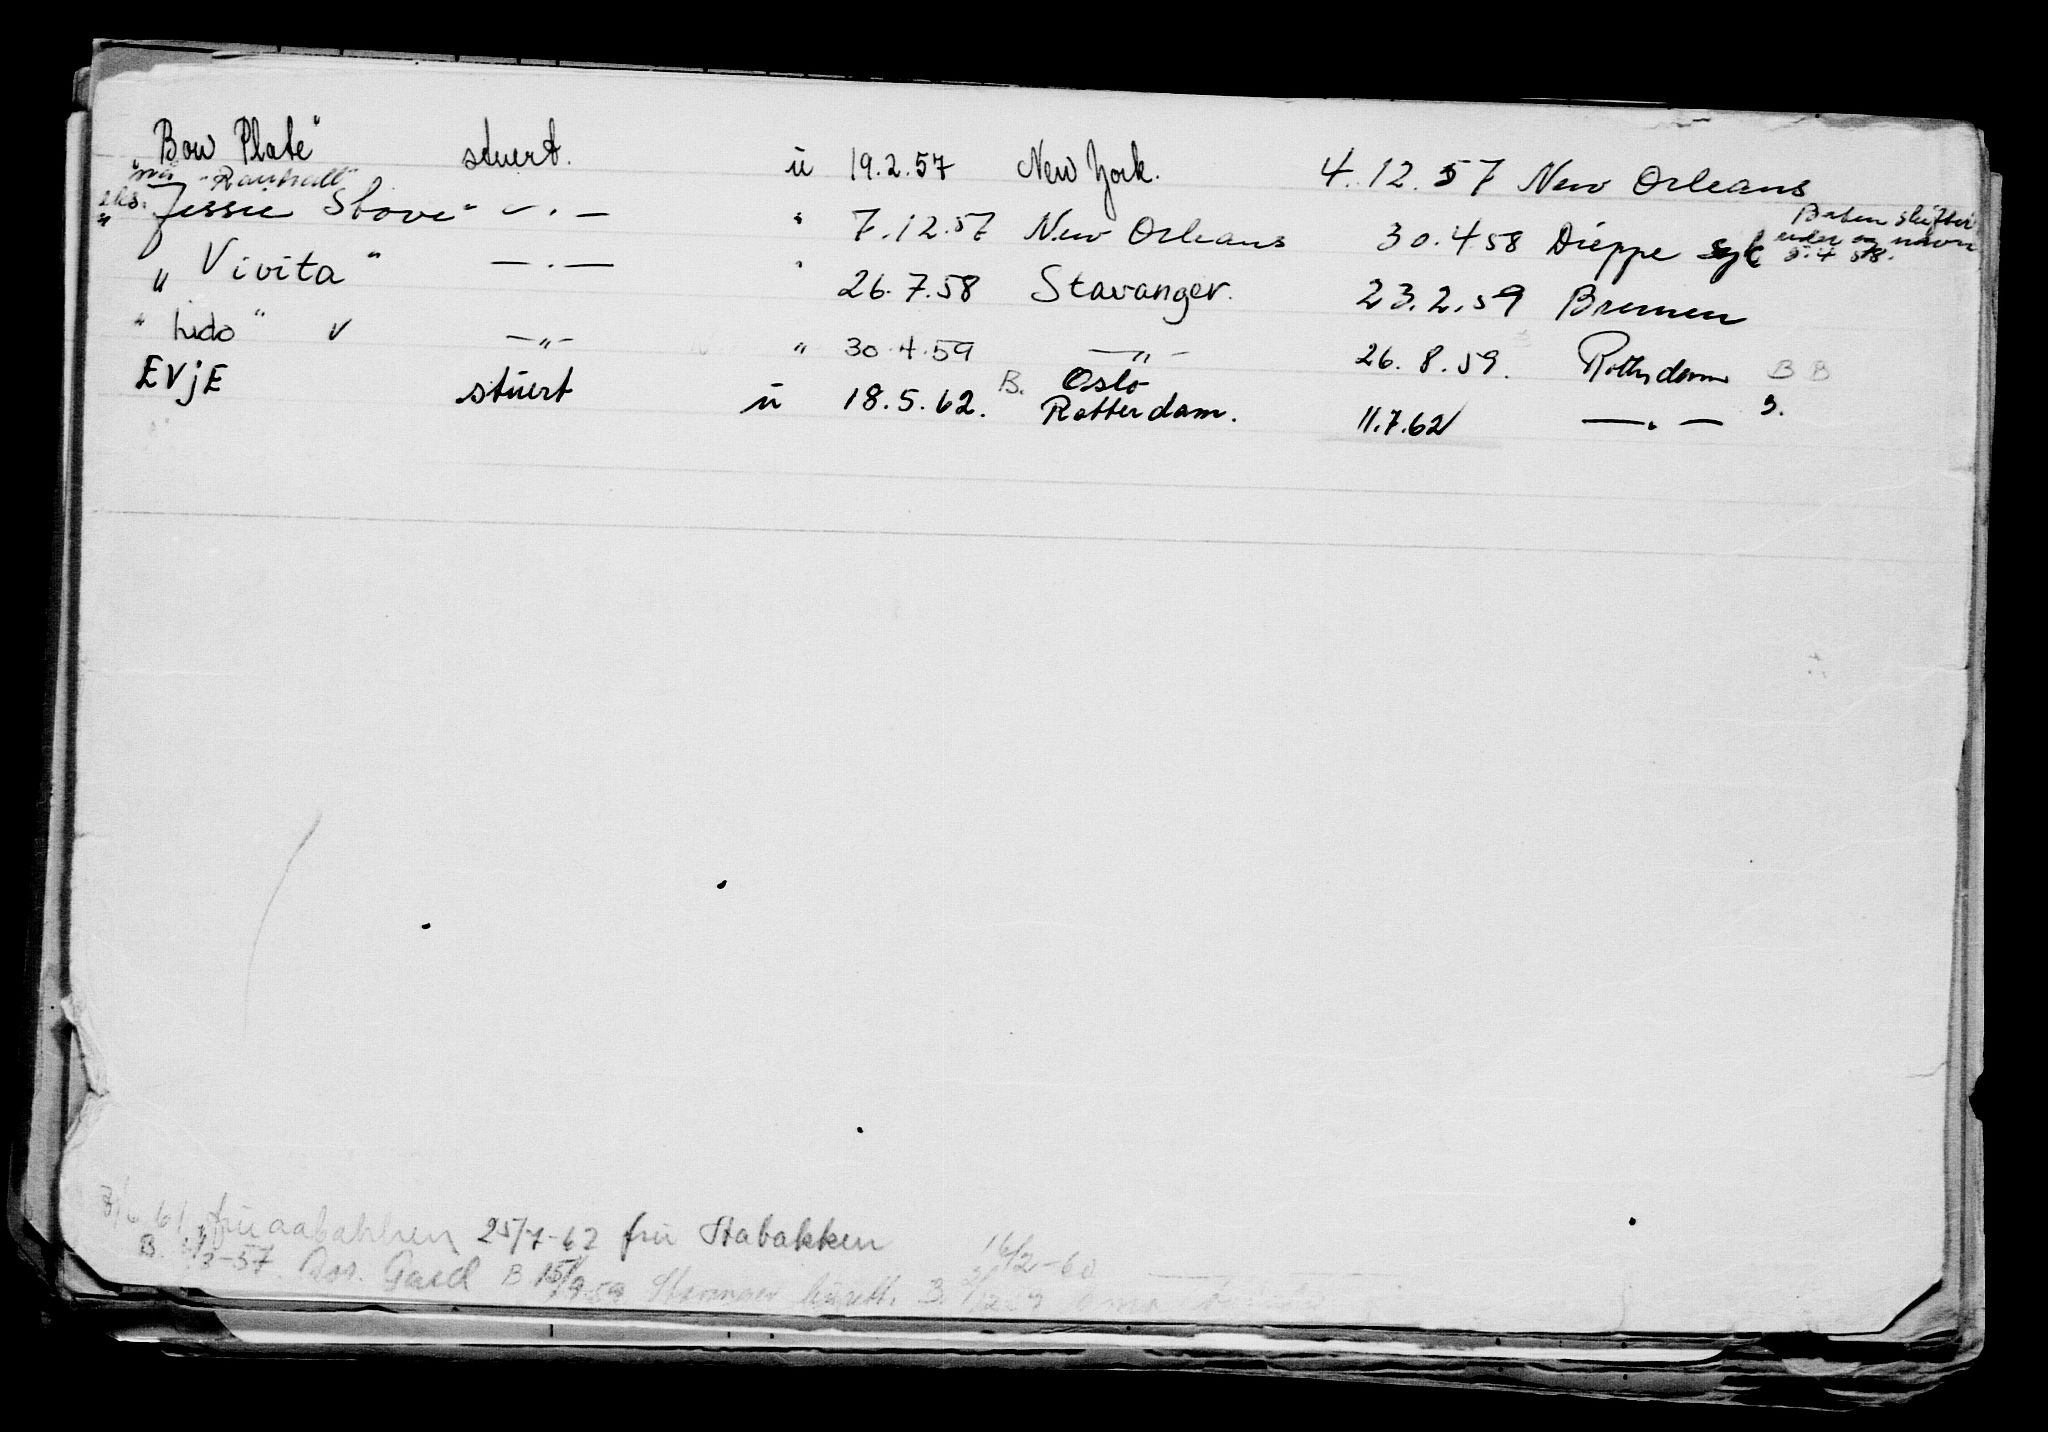 "Bow Plate" stuert. ü 19.2.57 New York. 4.12.57 New Orleans
nå "Ranhall"
eks. "Jessie Stove" — . — " 7.12.57 New Orleans 30.4.58 Dieppe syk Båten skifter
eider og navn
5.4.58.
" Vivita " — . — " 26.7.58 Stavanger. 23.2.59 Bremen
" Lido " v — " — " 30.4.59 — " — 26.8.59. Rotterdam BB
EVjE stuert ü 18.5.62. B. Oslo
Rotterdam. 11.7.62 — . — 3.
25/7-62 fru Stabakken
16/2-60
B. -57 Gard B 15/9.59 Stavanger 3.